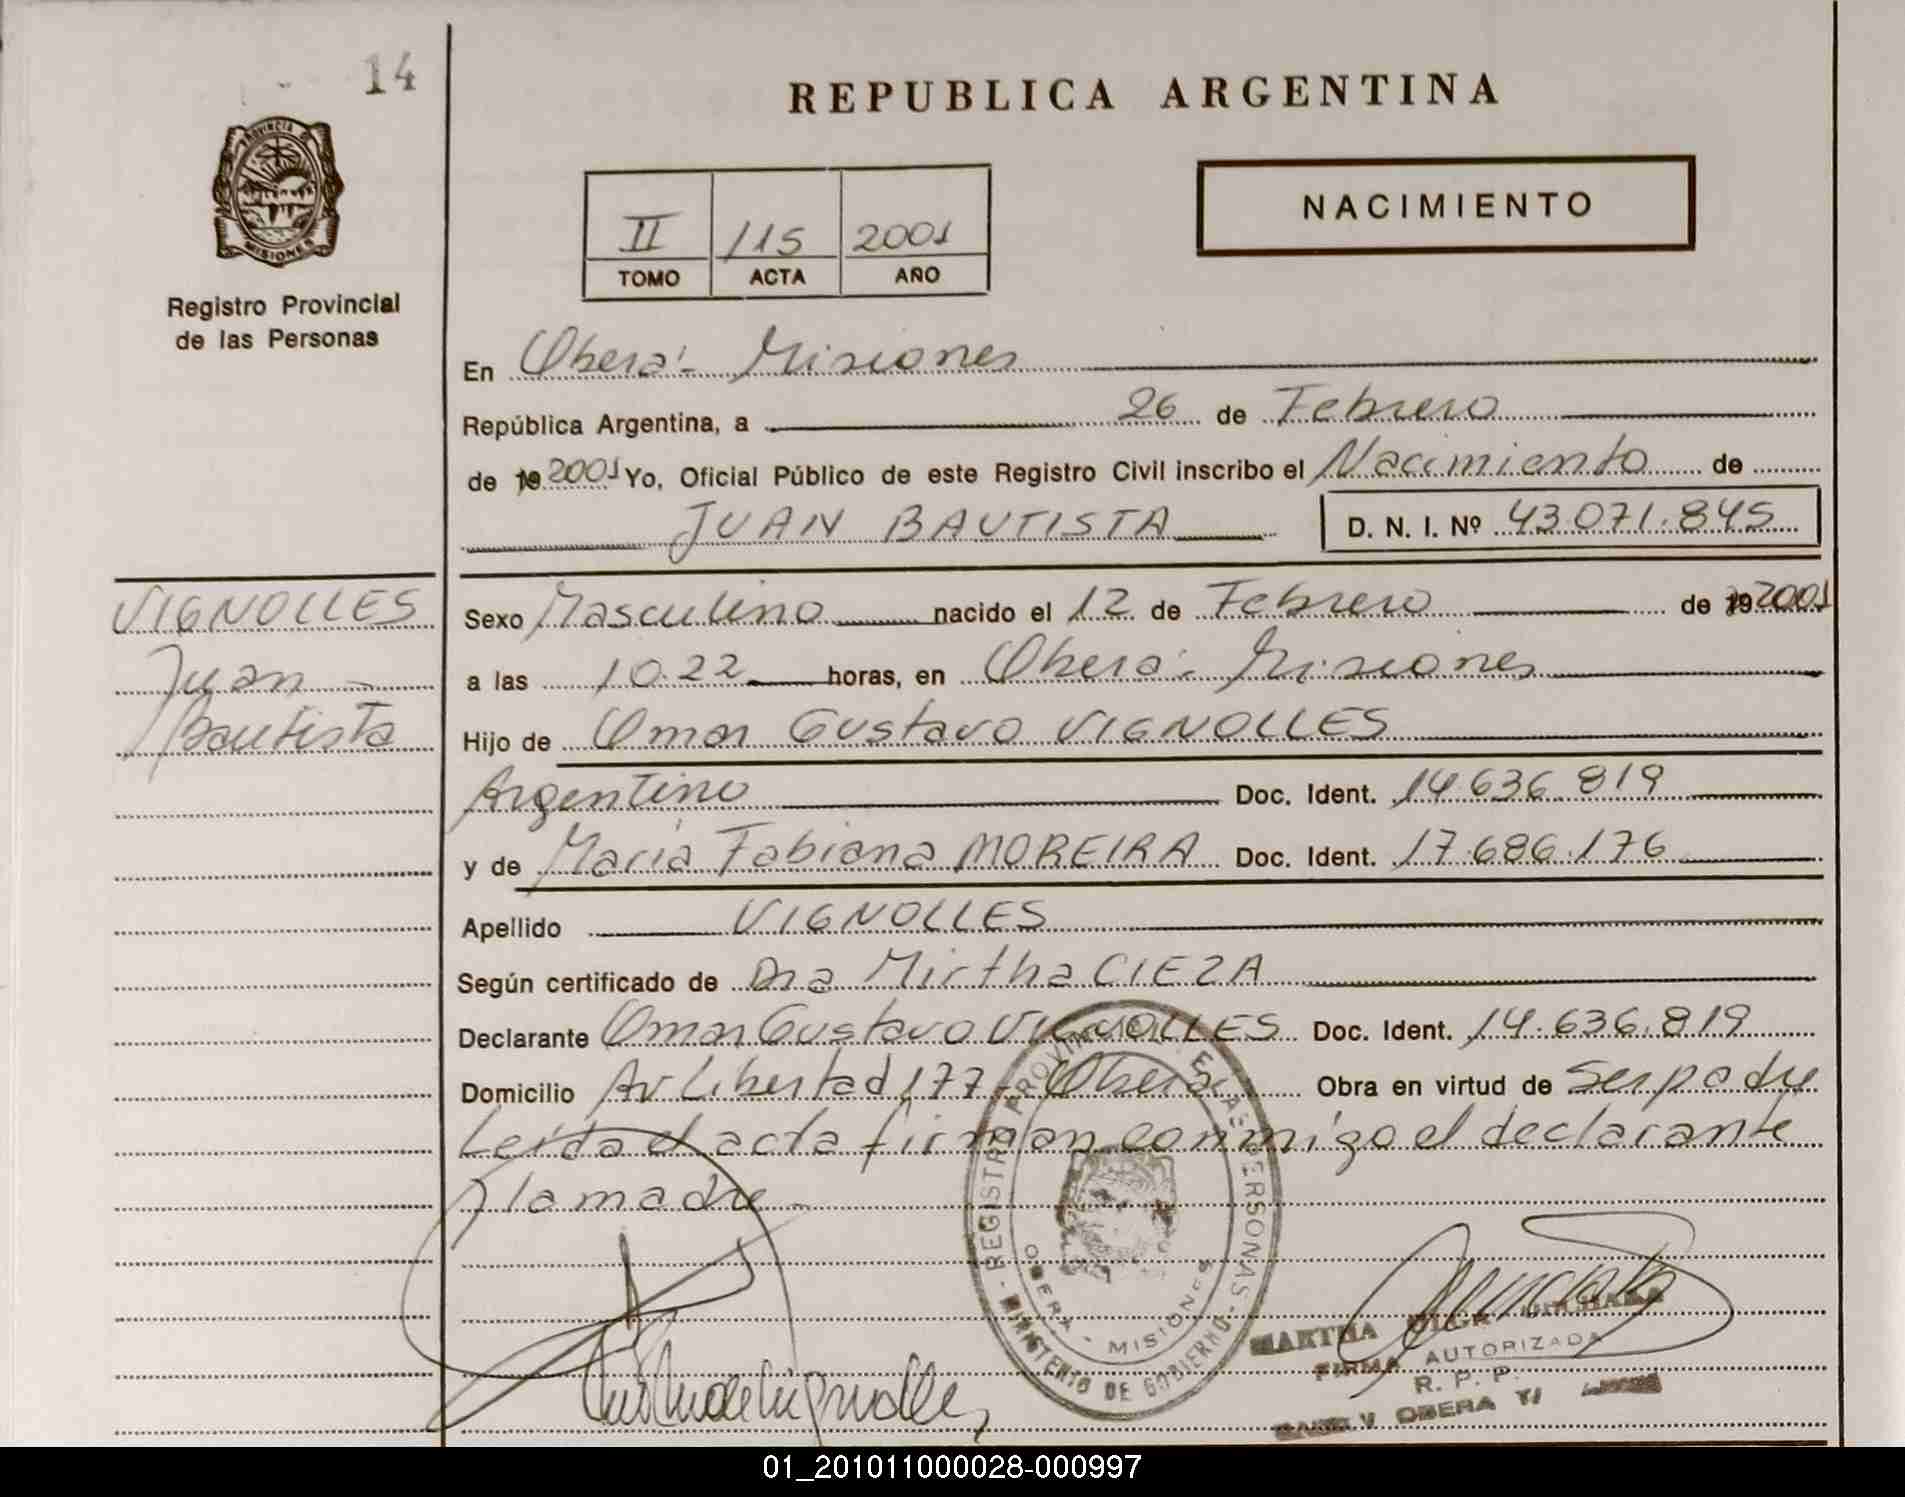 14
REPUBLICA ARGENTINA
PROVINCIA DE
MISIONES
Registro Provincial
de las Personas
NACIMIENTO
II 115 2001
TOMO ACTA AÑO
En Oberá - Misiones
República Argentina, a 26 de Febrero
de 19 2001 Yo, Oficial Público de este Registro Civil inscribo el Nacimiento de
JUAN BAUTISTA D. N. I. Nº 43.071.845
VIGNOLLES
Juan
Bautista
Sexo Masculino nacido el 12 de Febrero de 19 2001
a las 10.22 horas, en Oberá - Misiones
Hijo de Omar Gustavo VIGNOLLES
Argentino Doc. Ident. 14.636.819
y de María Fabiana MOREIRA Doc. Ident. 17.686.176
Apellido VIGNOLLES
Según certificado de Dra Mirtha CIEZA
Declarante Omar Gustavo VIGNOLLES Doc. Ident. 14.636.819
Domicilio Av Libertad 177 - Oberá Obra en virtud de Ser padre
Leída el acta firman conmigo el declarante
y la madre -
REGISTRO PROVINCIAL DE LAS PERSONAS - MINISTERIO DE GOBIERNO -
OBERA - MISIONES
MARTHA OLGA
FIRMA AUTORIZADA
R. P. P.
OBERA
01_201011000028-000997